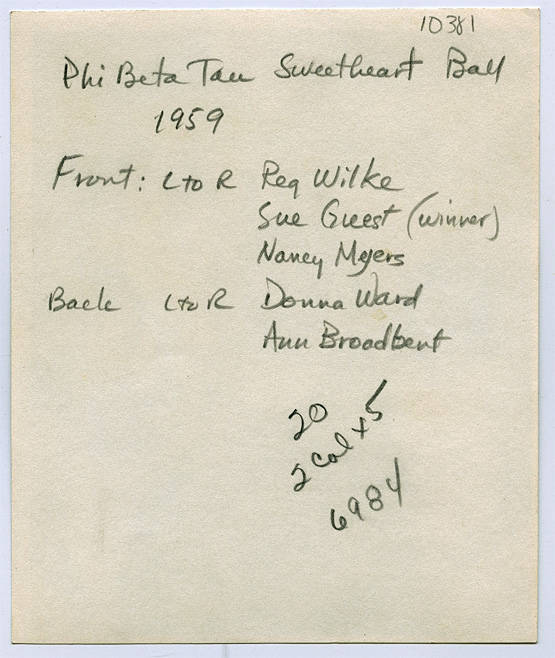 10381
Phi Beta Tau Sweetheart Ball
1959
Front: L to R Reg Wilke
Sue Guest (winner)
Nancy Myers
Back L to R Donna Ward
Ann Broadbent
20
2 col x 5
6984